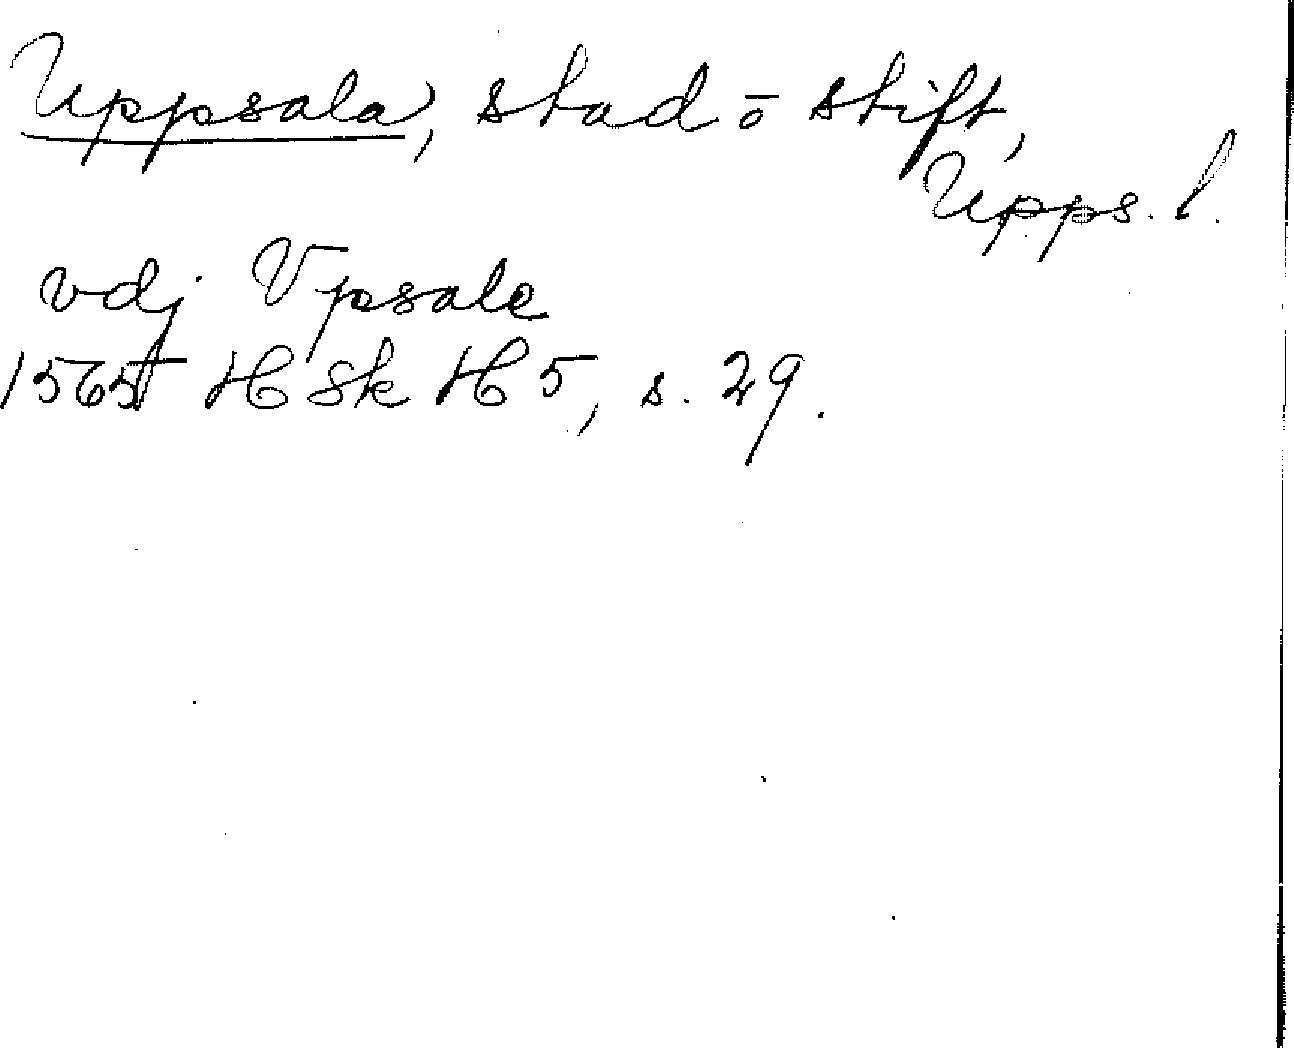 Uppsala, stad o stift,
Upps. l.
vdj Vpsale
1565 HSk H 5, s. 29.